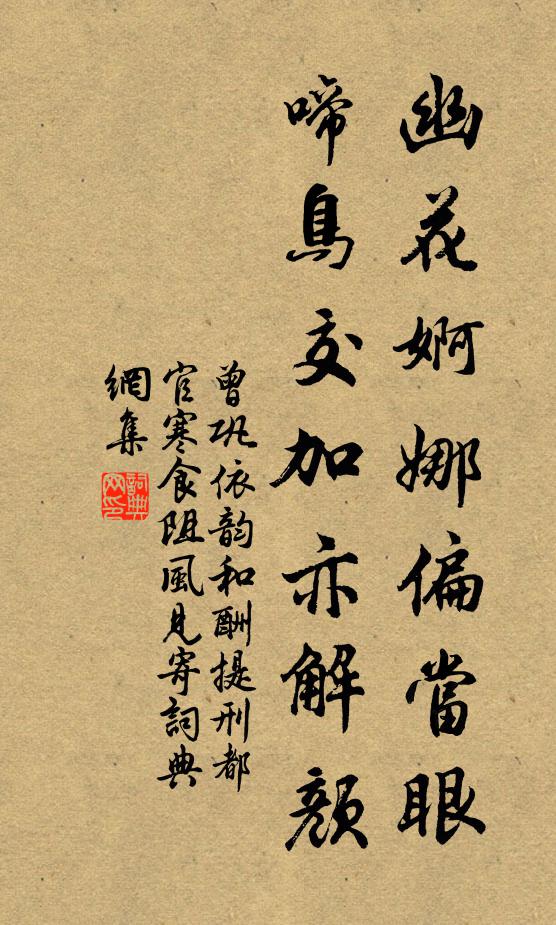 幽花婀娜偏當眼
啼鳥交加亦解顏
曾巩依韵和酬提刑都
官寒食阻風見寄詞典
網集
詞典
网印